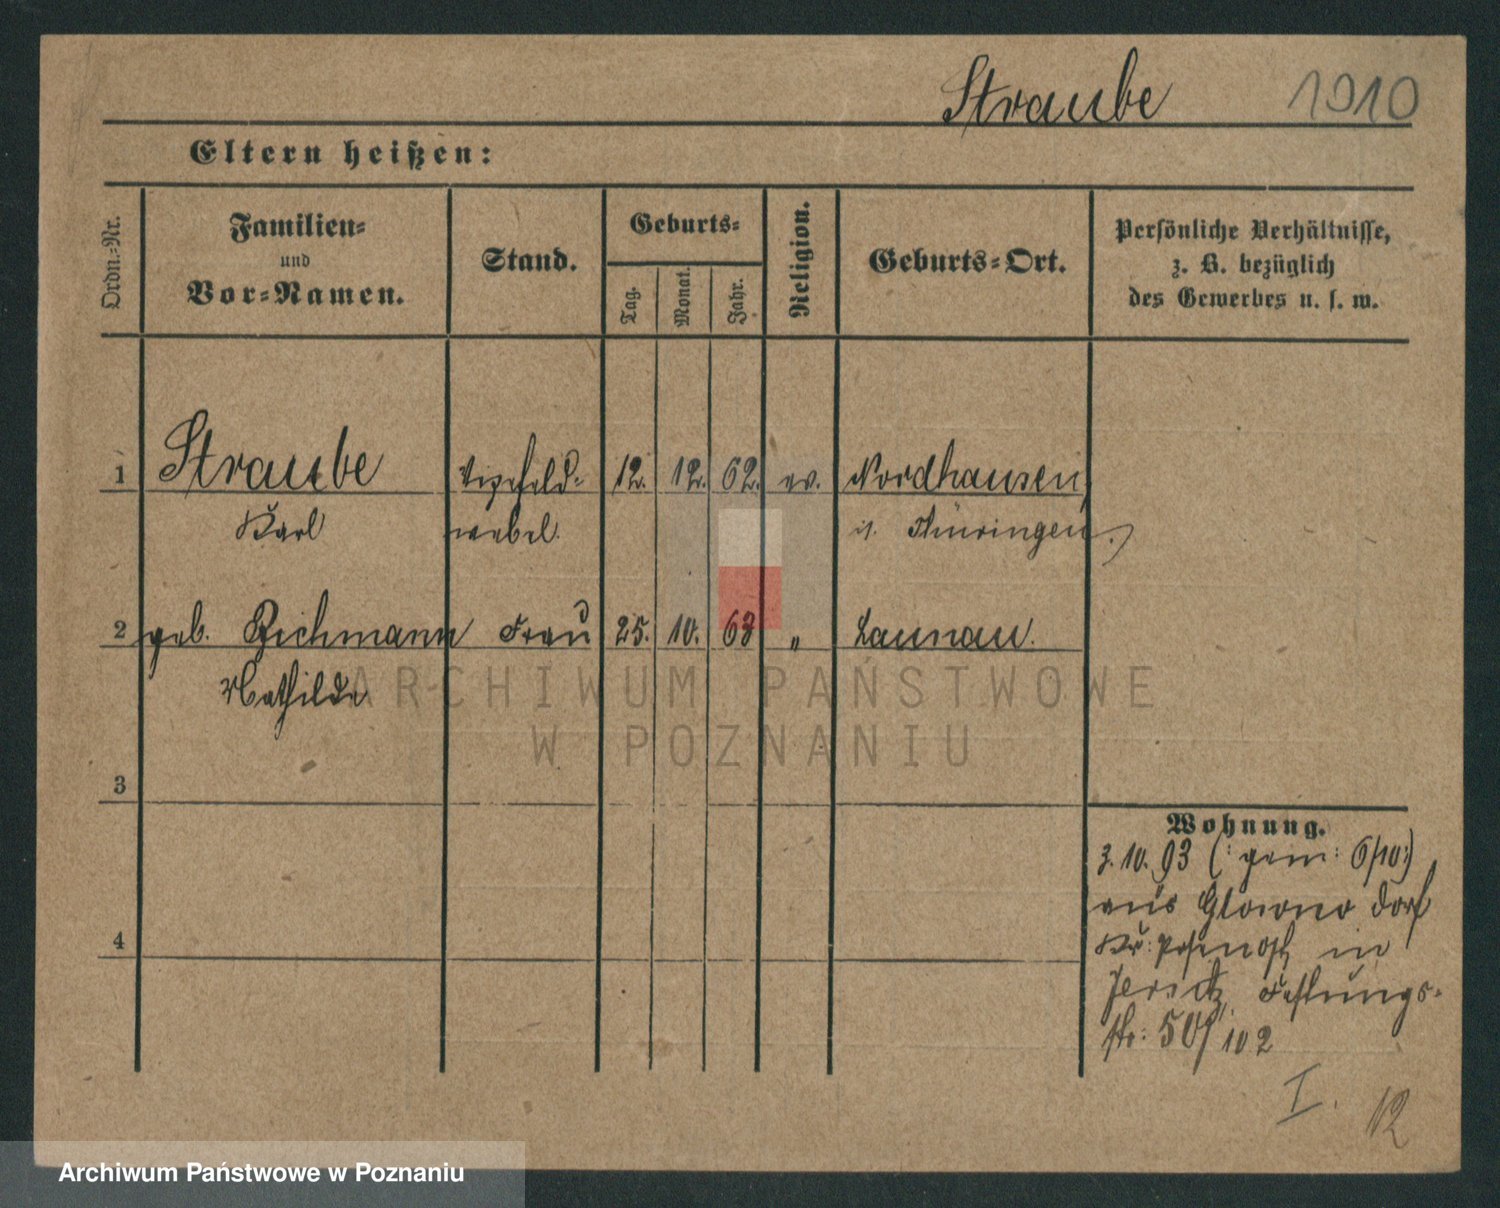 Straube 1910
Eltern heißen:
Ordn.-Nr.
Familien-
und
Vor-Namen.
Stand.
Geburts-
Tag.
Monat.
Jahr.
Religion.
Geburts-Ort.
Persönliche Verhältnisse,
z. B. bezüglich
des Gewerbes u. s. w.
1 Straube Vizefeld- 12. 12. 62. ev. Nordhausen
Karl webel. i. Thüringen.
2 geb. Richmann Frau 25. 10. 63 " Launau.
Mathilde
3
4
Wohnung.
3.10.93 (: gem: 6/10:)
aus Glowno Dorf
Kr: Posen Ost in
Jersitz, Festungs-
str: 50/102
I. 12
ARCHIWUM PAŃSTWOWE
W POZNANIU
Archiwum Państwowe w Poznaniu